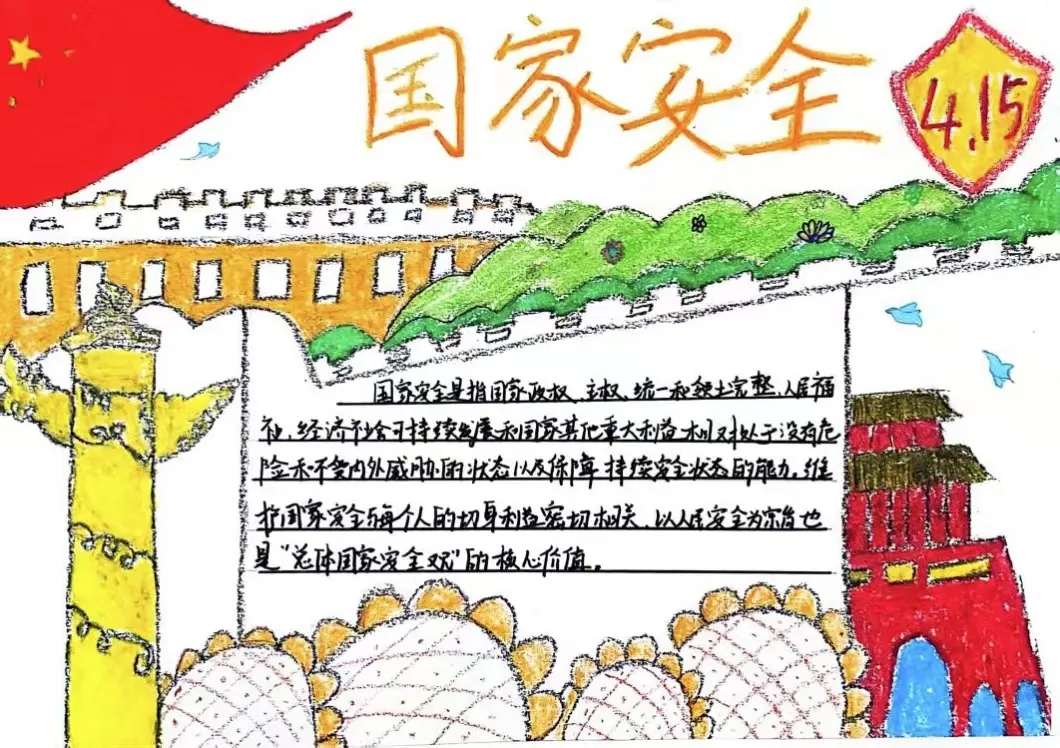 国家安全
4.15
国家安全是指国家政权、主权、统一和领土完整、人民福
祉、经济社会可持续发展和国家其他重大利益相对处于没有危
险和不受内外威胁的状态以及保障持续安全状态的能力。维
护国家安全与每个人的切身利益密切相关，以人民安全为宗旨也
是“总体国家安全观”的核心价值。